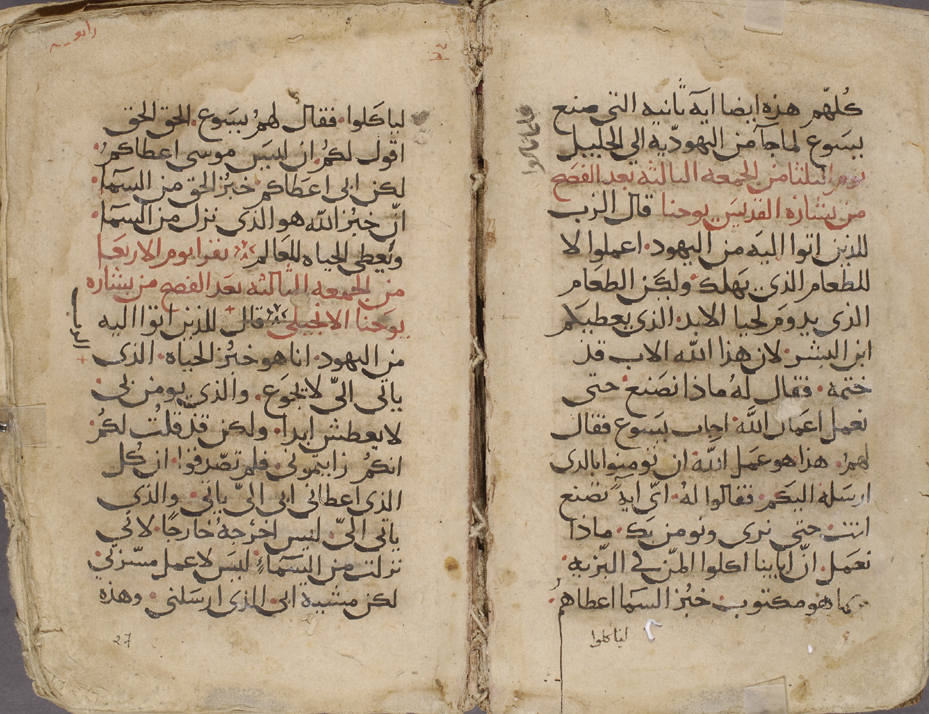 كلهم هذه ايضا ايه ثانيه التي صنع
يسوع لما جا من اليهوديه الي الجليل
يوم الثلثا من الجمعه الثالثه بعد الفصح
من بشاره القديس يوحنا قال الرب
للذين اتوا اليه من اليهود. اعملوا لا
للطعام الذي يهلك. ولكن الطعام
الذي يدوم لحيا الابد. الذي يعطيكم
ابن البشر. لان هذا الله الاب قد
ختمه. فقال له ماذا نصنع حتى
نعمل اعمال الله. اجاب يسوع فقال
لهم. هذا هو عمل الله ان تومنوا بالذي
ارسله اليكم. فقالوا له. ايّ ايه تصنع
انت حتى نرى ونومن بك. ماذا
تعمل. انّ آباينا اكلوا المنّ في البرّيه.
كما هو مكتوب. خبز السما اعطاهم.
لياكلوا
لياكلوا. فقال لهم يسوع. الحق الحق
اقول لكم. ان ليس موسى اعطاكم.
لكن ابي اعطاكم خبز الحق من السما.
انّ خبز الله هو الذي نزل من السما.
ويعطي الحياه للعالم. تقرا يوم الاربعا
من الجمعه الثالثه بعد الفصح من بشاره
يوحنا الانجيلي قال للذين اتوا اليه
من اليهود. انا هو خبز الحياه. الذي
ياتي اليّ لا يجوع. والذي يومن بي.
لا يعطش ابدا. ولكن قد قلت لكم.
انكم رايتموني فلم تصدقوا. ان كل
الذي اعطاني ابي اليّ ياتي. والذي
ياتي اليّ. ليس اخرجه خارجًا. لاني
نزلت من السماء. ليس لاعمل مسرّتي
لكن مشية ابي الذي ارسلني. وهذه
27